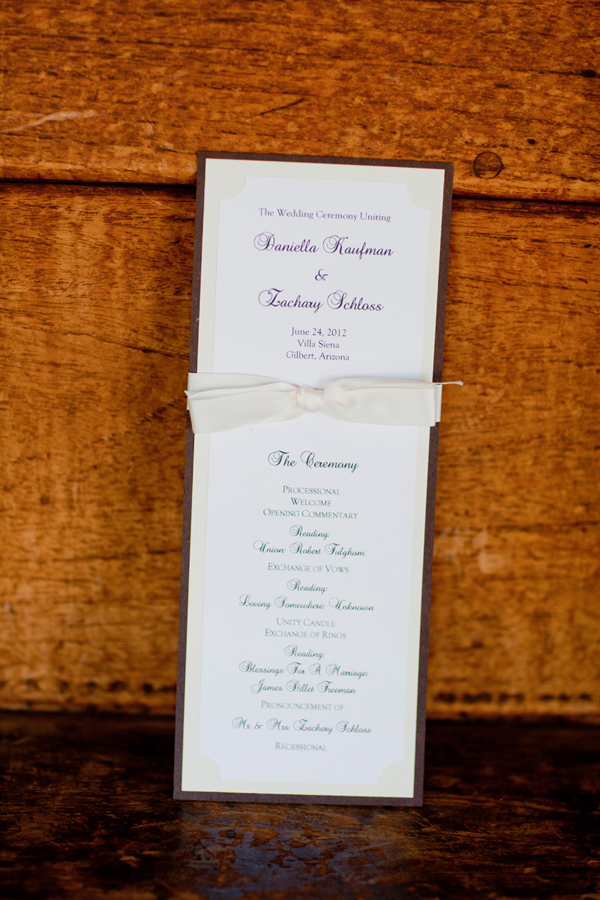 The Wedding Ceremony Uniting
Daniella Kaufman
&
Zachary Schloss
June 24, 2012
Villa Siena
Gilbert, Arizona
The Ceremony
Processional
Welcome
Opening Commentary
Reading:
Union: Robert Fulghum
Exchange of Vows
Reading:
Loving Somewhere: Unknown
Unity Candle
Exchange of Rings
Reading:
Blessings For A Marriage:
James Dillet Freeman
Pronouncement of
Mr. & Mrs. Zachary Schloss
Recessional